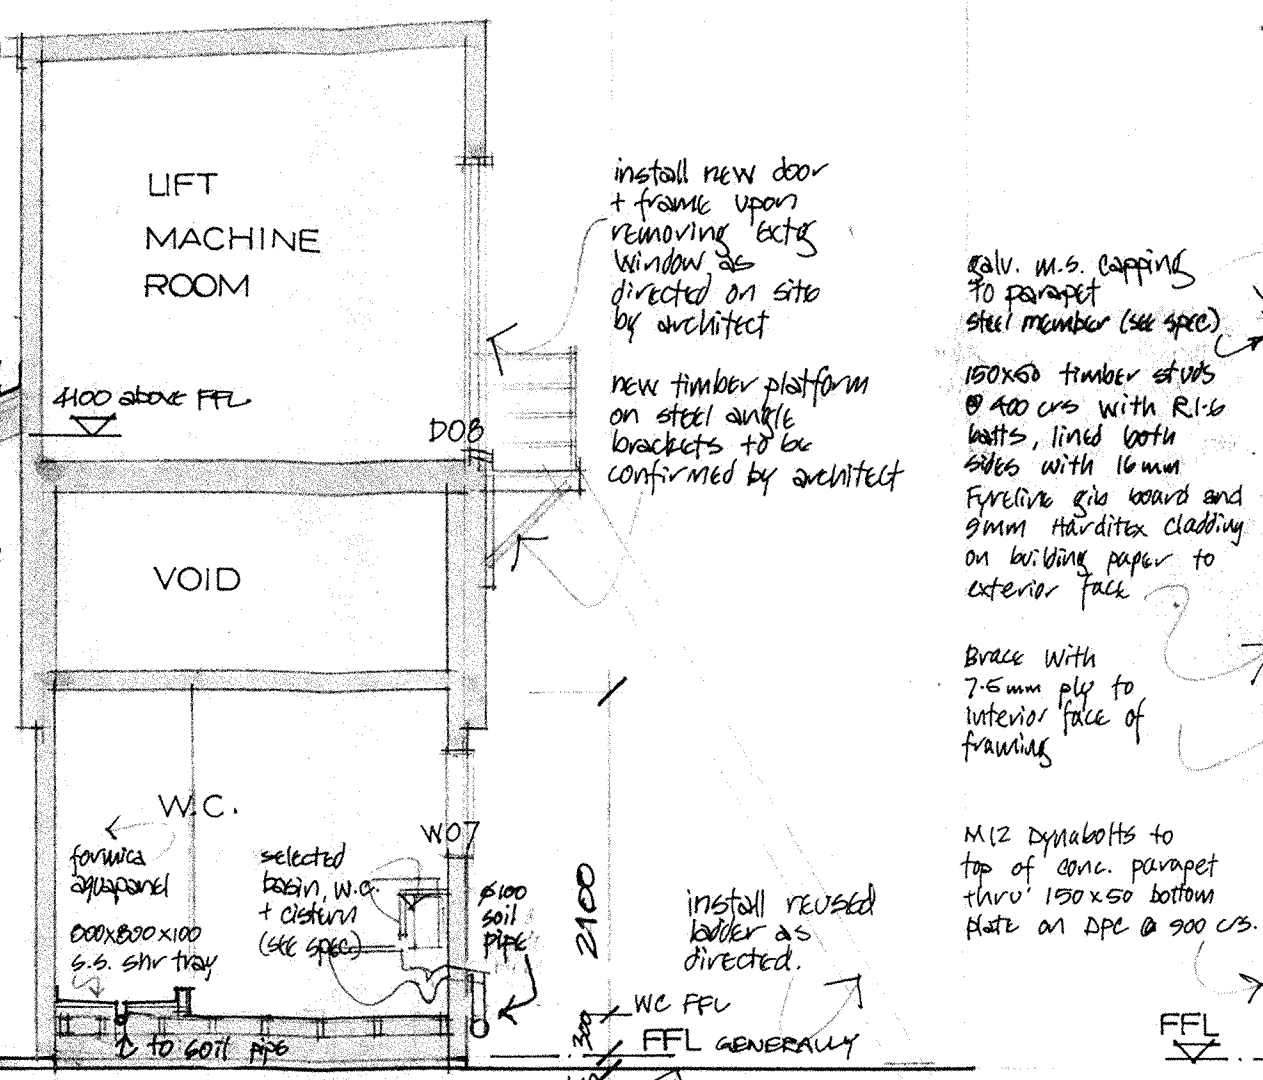 LIFT
MACHINE
ROOM
4100 above FFL
D08
VOID
W.C.
formica
aquapanel
800x800x100
s.s. shr tray
to soil pipe
selected
basin, w.c.
+ cistern
(see spec)
W07
ø100
soil
pipe
install new door
+ frame upon
removing extg
window as
directed on site
by architect
new timber platform
on steel angle
brackets to be
confirmed by architect
2100
300
install reused
ladder as
directed.
WC FFL
FFL GENERALLY
galv. m.s. capping
to parapet
steel member (see spec)
150x50 timber studs
@ 400 crs with R1.6
batts, lined both
sides with 16mm
Fyreline gib board and
9mm Harditex cladding
on building paper to
exterior face
Brace with
7.5mm ply to
interior face of
framing
M12 Dynabolts to
top of conc. parapet
thru' 150x50 bottom
plate on DPC @ 900 crs.
FFL